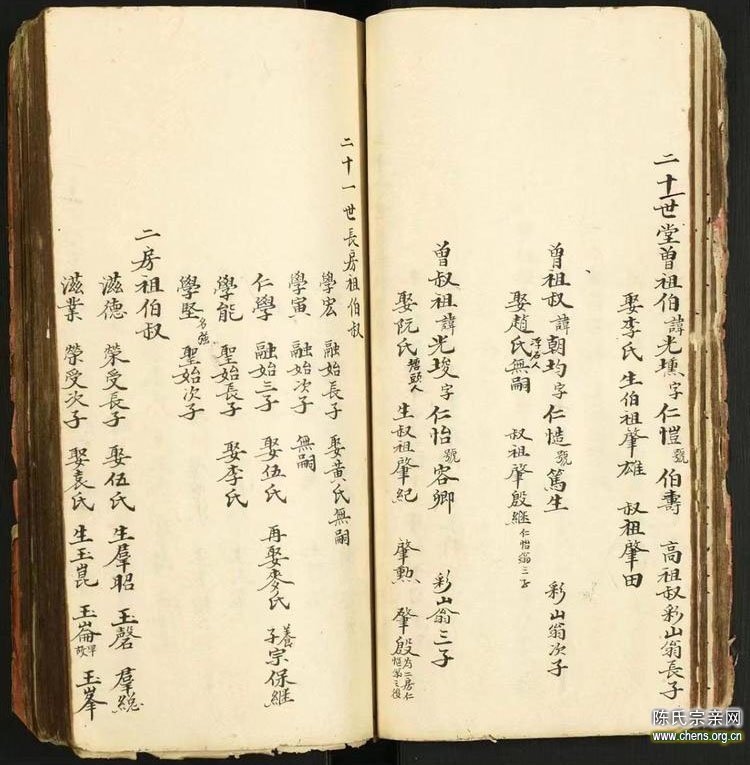 二十一世堂曾祖伯諱光壎字仁愷號伯壽 高祖叔彩山翁長子
娶李氏生伯祖肇雄 叔祖肇田
曾祖叔諱朝均字仁慥號篤生 彩山翁次子
娶趙氏浮石人無嗣 叔祖肇殷繼仁怡翁三子
曾叔祖諱光埈字仁怡號容卿 彩山翁三子
娶阮氏塘頭人 生叔祖肇紀 肇勳 肇殷為二房仁慥翁之後
二十一世長房祖伯叔
學宏 融始長子 娶黃氏無嗣
學寅 融始次子 無嗣
仁學 融始三子 娶伍氏 再娶麥氏 養子宗保繼
學能 聖始長子 娶李氏
學堅名強 聖始次子
二房祖伯叔
滋德 榮受長子 娶伍氏 生羣昭 玉磬 羣緫
滋業 榮受次子 娶袁氏 生玉崑 玉崙早故 玉峯
陈氏宗亲网
www.chens.org.cn